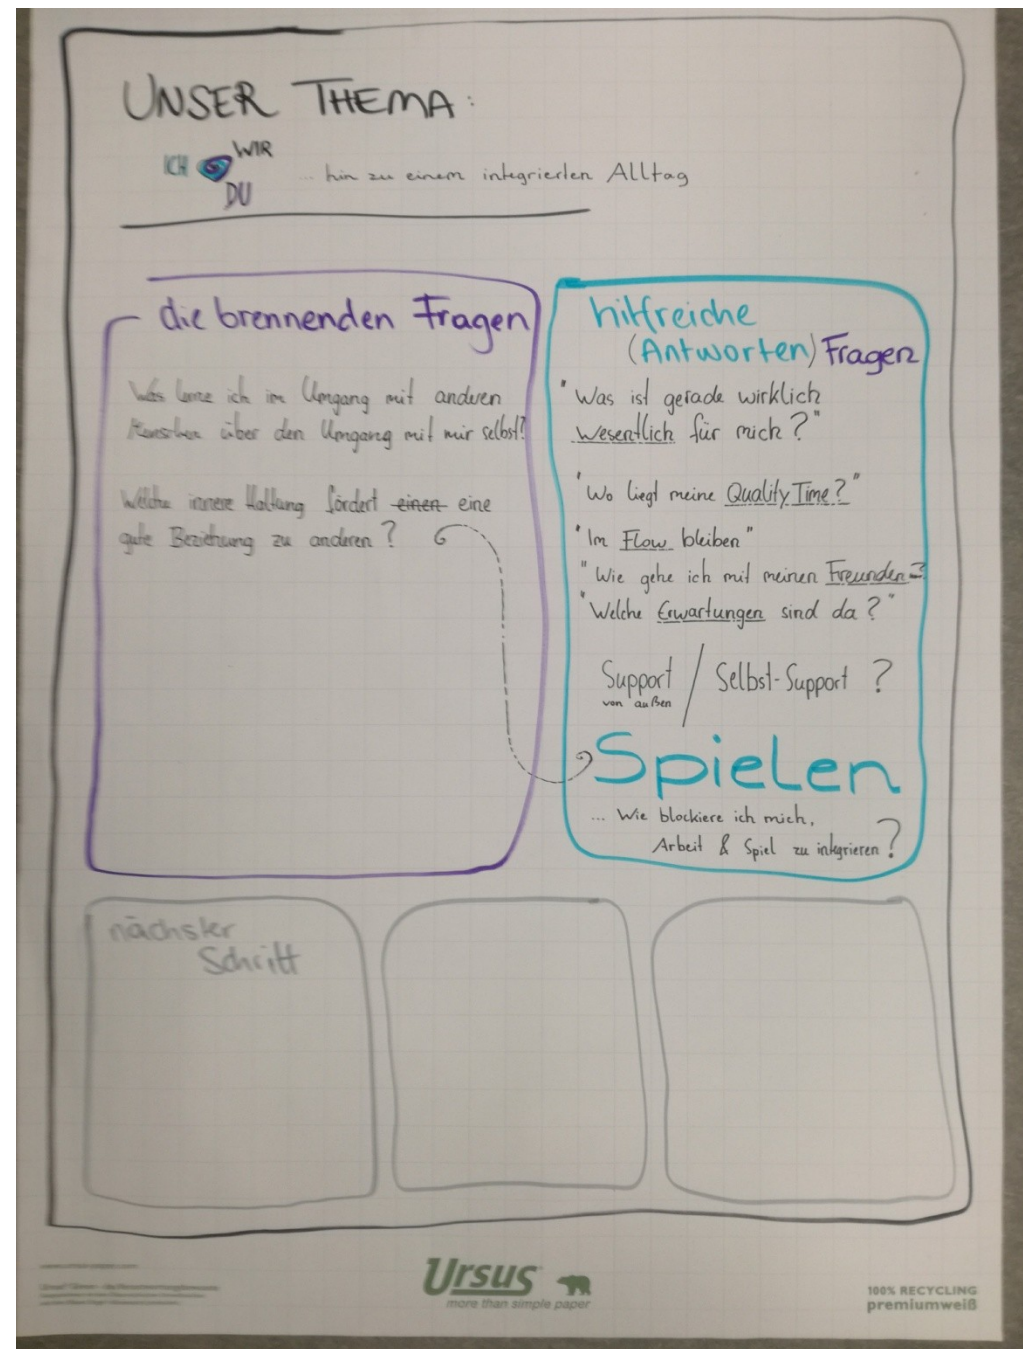 UNSER THEMA:
ICH WIR
DU
... hin zu einem integrierten Alltag
die brennenden Fragen
Was lerne ich im Umgang mit anderen
Menschen über den Umgang mit mir selbst?
Welche innere Haltung fördert einen eine
gute Beziehung zu anderen?
hilfreiche
(Antworten) Fragen
"Was ist gerade wirklich
wesentlich für mich?"
"Wo liegt meine Quality Time?"
"Im Flow bleiben"
"Wie gehe ich mit meinen Freunden?
"Welche Erwartungen sind da?"
Support / Selbst-Support ?
von außen
Spielen
... Wie blockiere ich mich,
Arbeit & Spiel zu integrieren?
nächster
Schritt
Ursus
more than simple paper
100% RECYCLING
premiumweiß